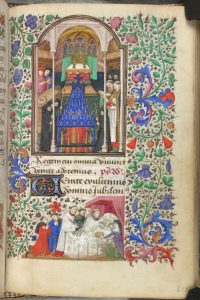 Regem cui omnia vivunt
venite adoremus. ps.
Venite exultemus
domino jubilem